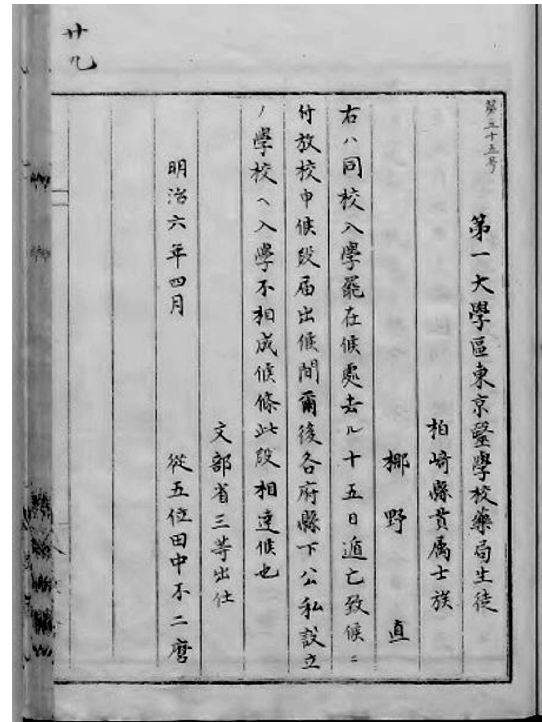 廿九
第三十五号
第一大學區東京醫學校藥局生徒
柏崎縣貫属士族
梛野 直
右ハ同校入學罷在候處去ル十五日遁亡致候ニ
付放校申候段届出候間爾後各府縣下公私設立
ノ學校ヘ入學不相成候條此段相達候也
文部省三等出仕
明治六年四月 從五位田中不二麿